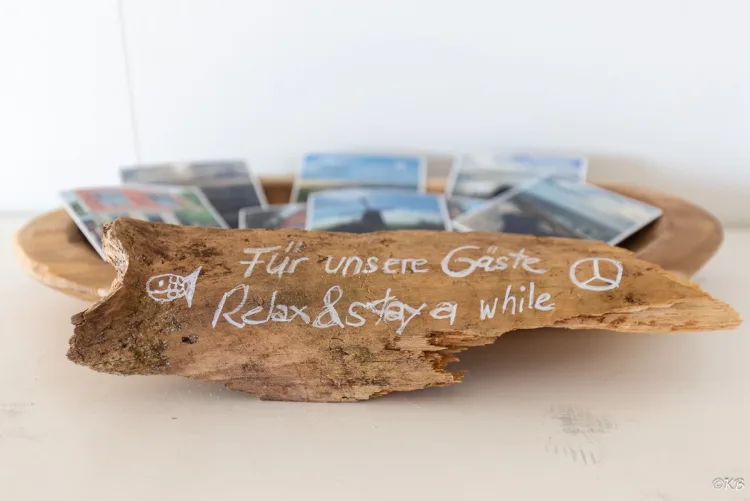 Für unsere Gäste
Relax & stay a while
©KB